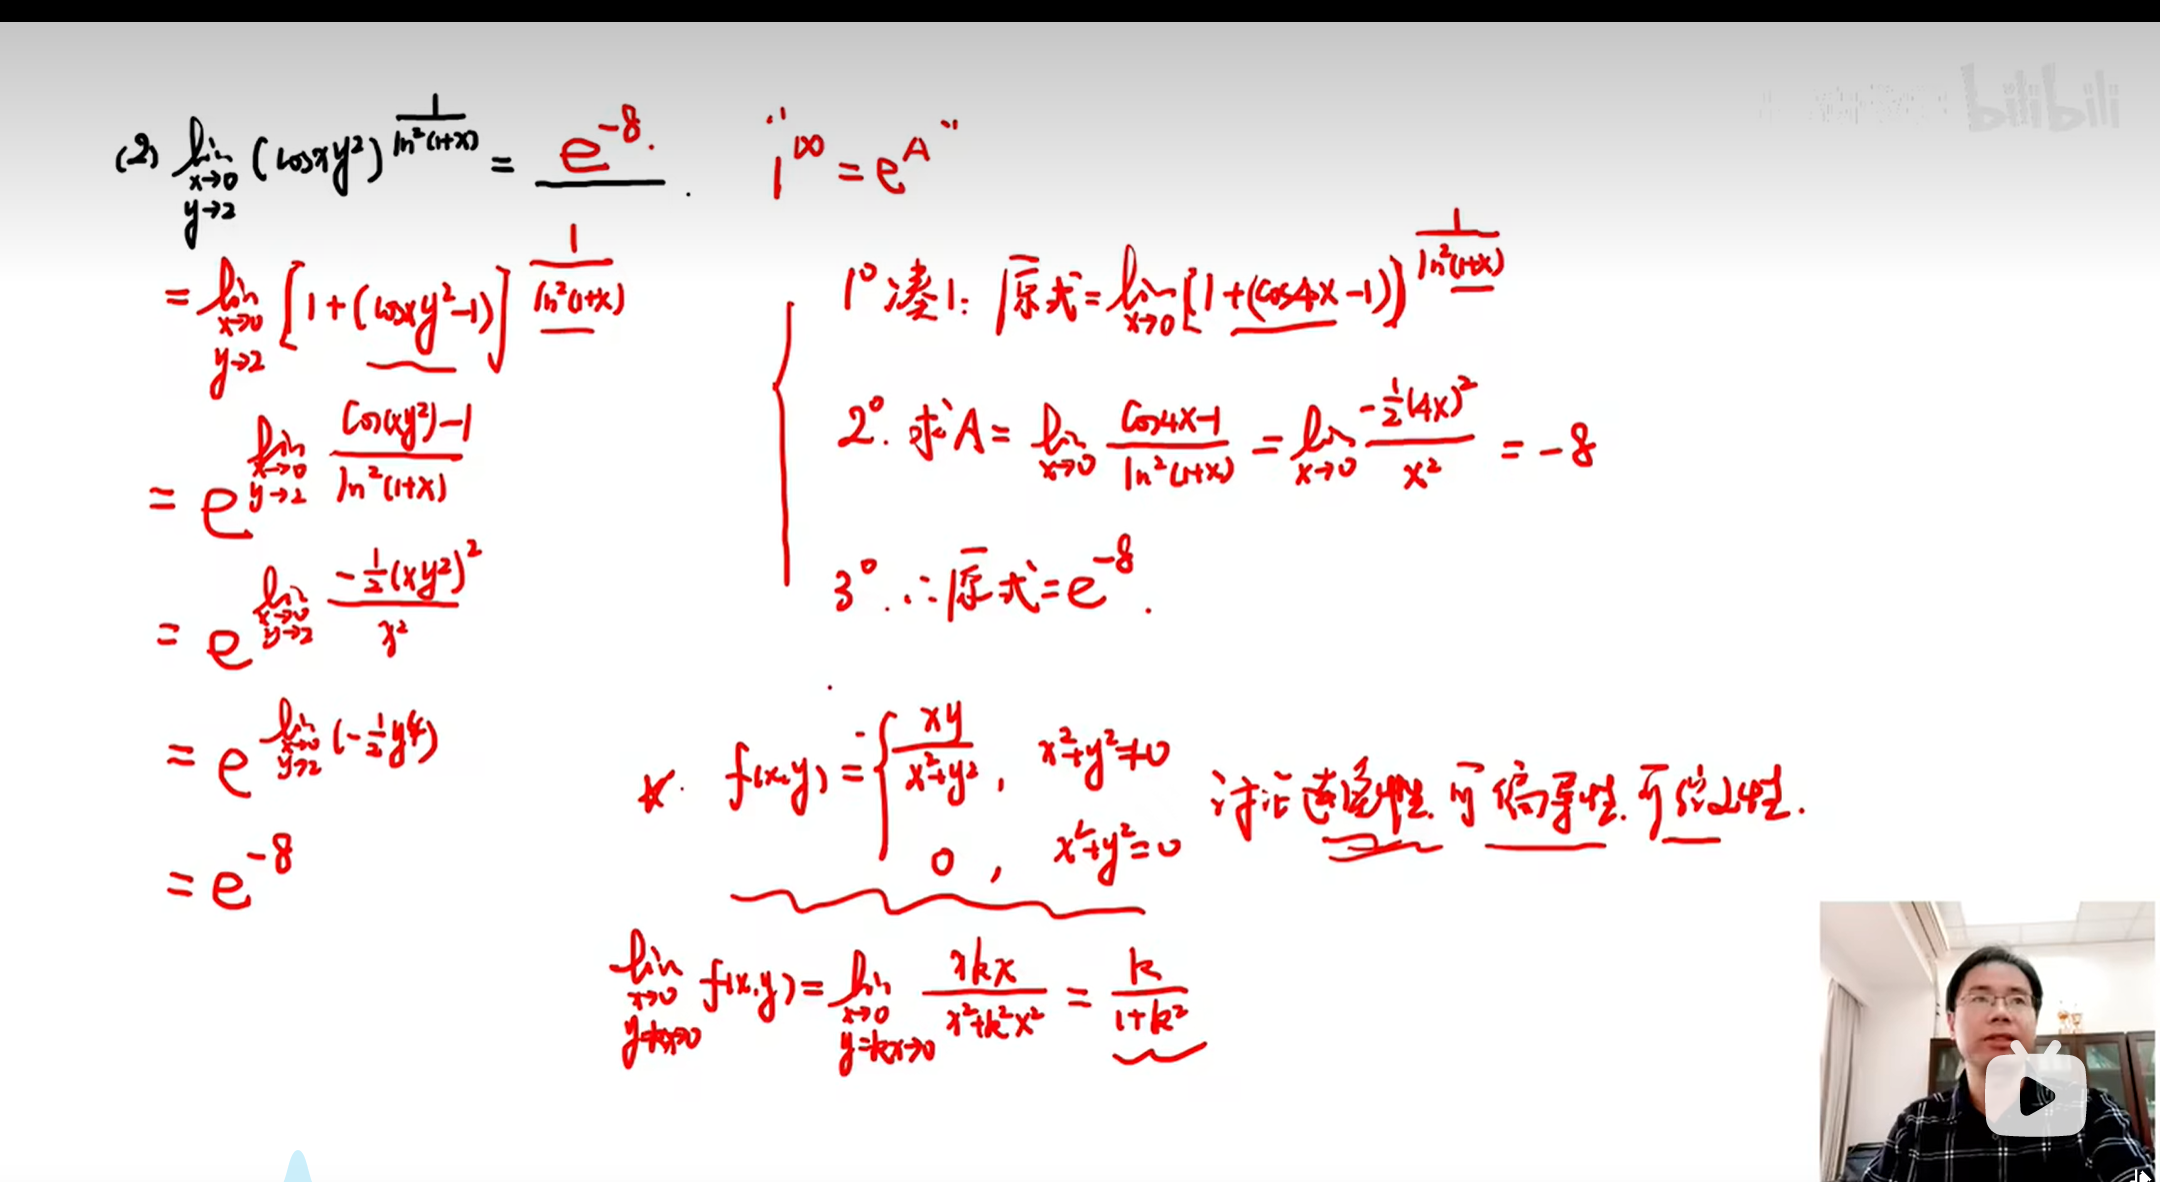 bilibili
(2) lim x→0 y→2 (cosxy²)^(1/ln²(1+x)) = e^(-8).
"1^∞ = e^A"
= lim x→0 y→2 [1+(cosxy²-1)]^(1/ln²(1+x))
= e^(lim x→0 y→2 (cos(xy²)-1)/ln²(1+x))
= e^(lim x→0 y→2 (-1/2(xy²)²)/x²)
= e^(lim x→0 y→2 (-1/2y⁴))
= e^(-8)
1° 凑1: 原式=lim x→0 [1+(cos4x-1)]^(1/ln²(1+x))
2°. 求A= lim x→0 (cos4x-1)/ln²(1+x) = lim x→0 (-1/2(4x)²)/x² = -8
3°. ∴原式=e^(-8).
☆. f(x,y) = { xy/(x²+y²), x²+y²≠0
0, x²+y²=0
讨论连续性.可偏导性.可微性.
lim x→0 y=kx→0 f(x,y)= lim x→0 y=kx→0 xkx/(x²+k²x²) = k/(1+k²)